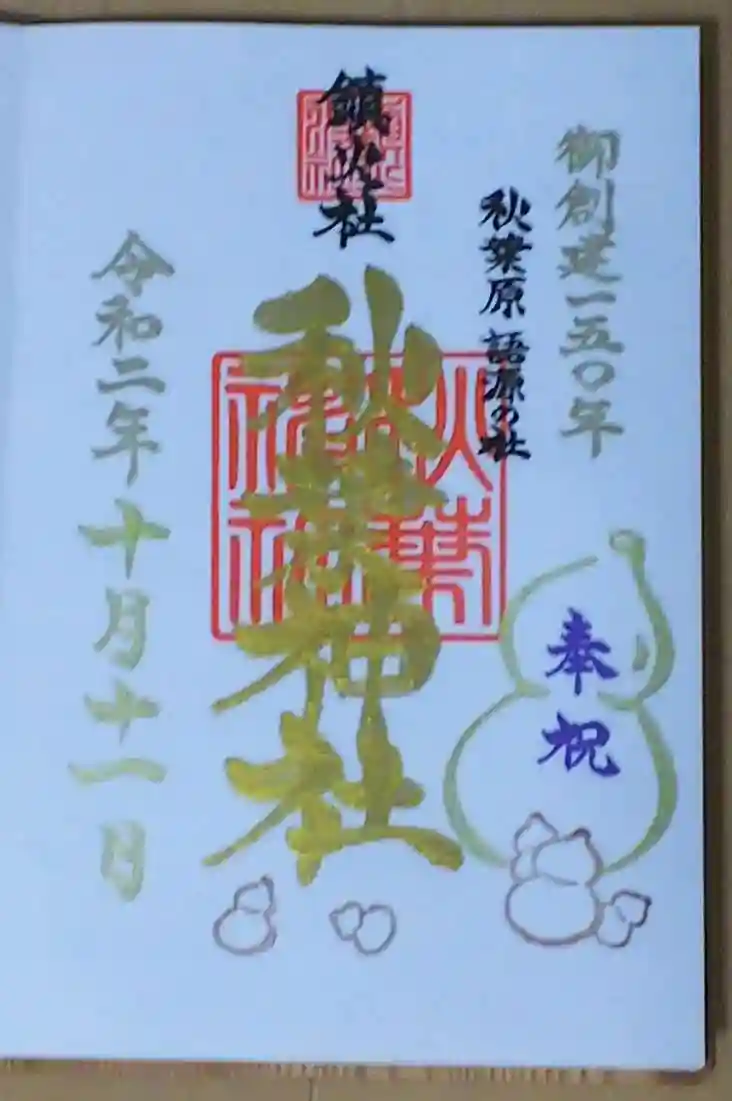 御創建一五〇年
秋葉原 語源の社
奉祝
鎮火社
秋葉神社
令和二年十月十一日